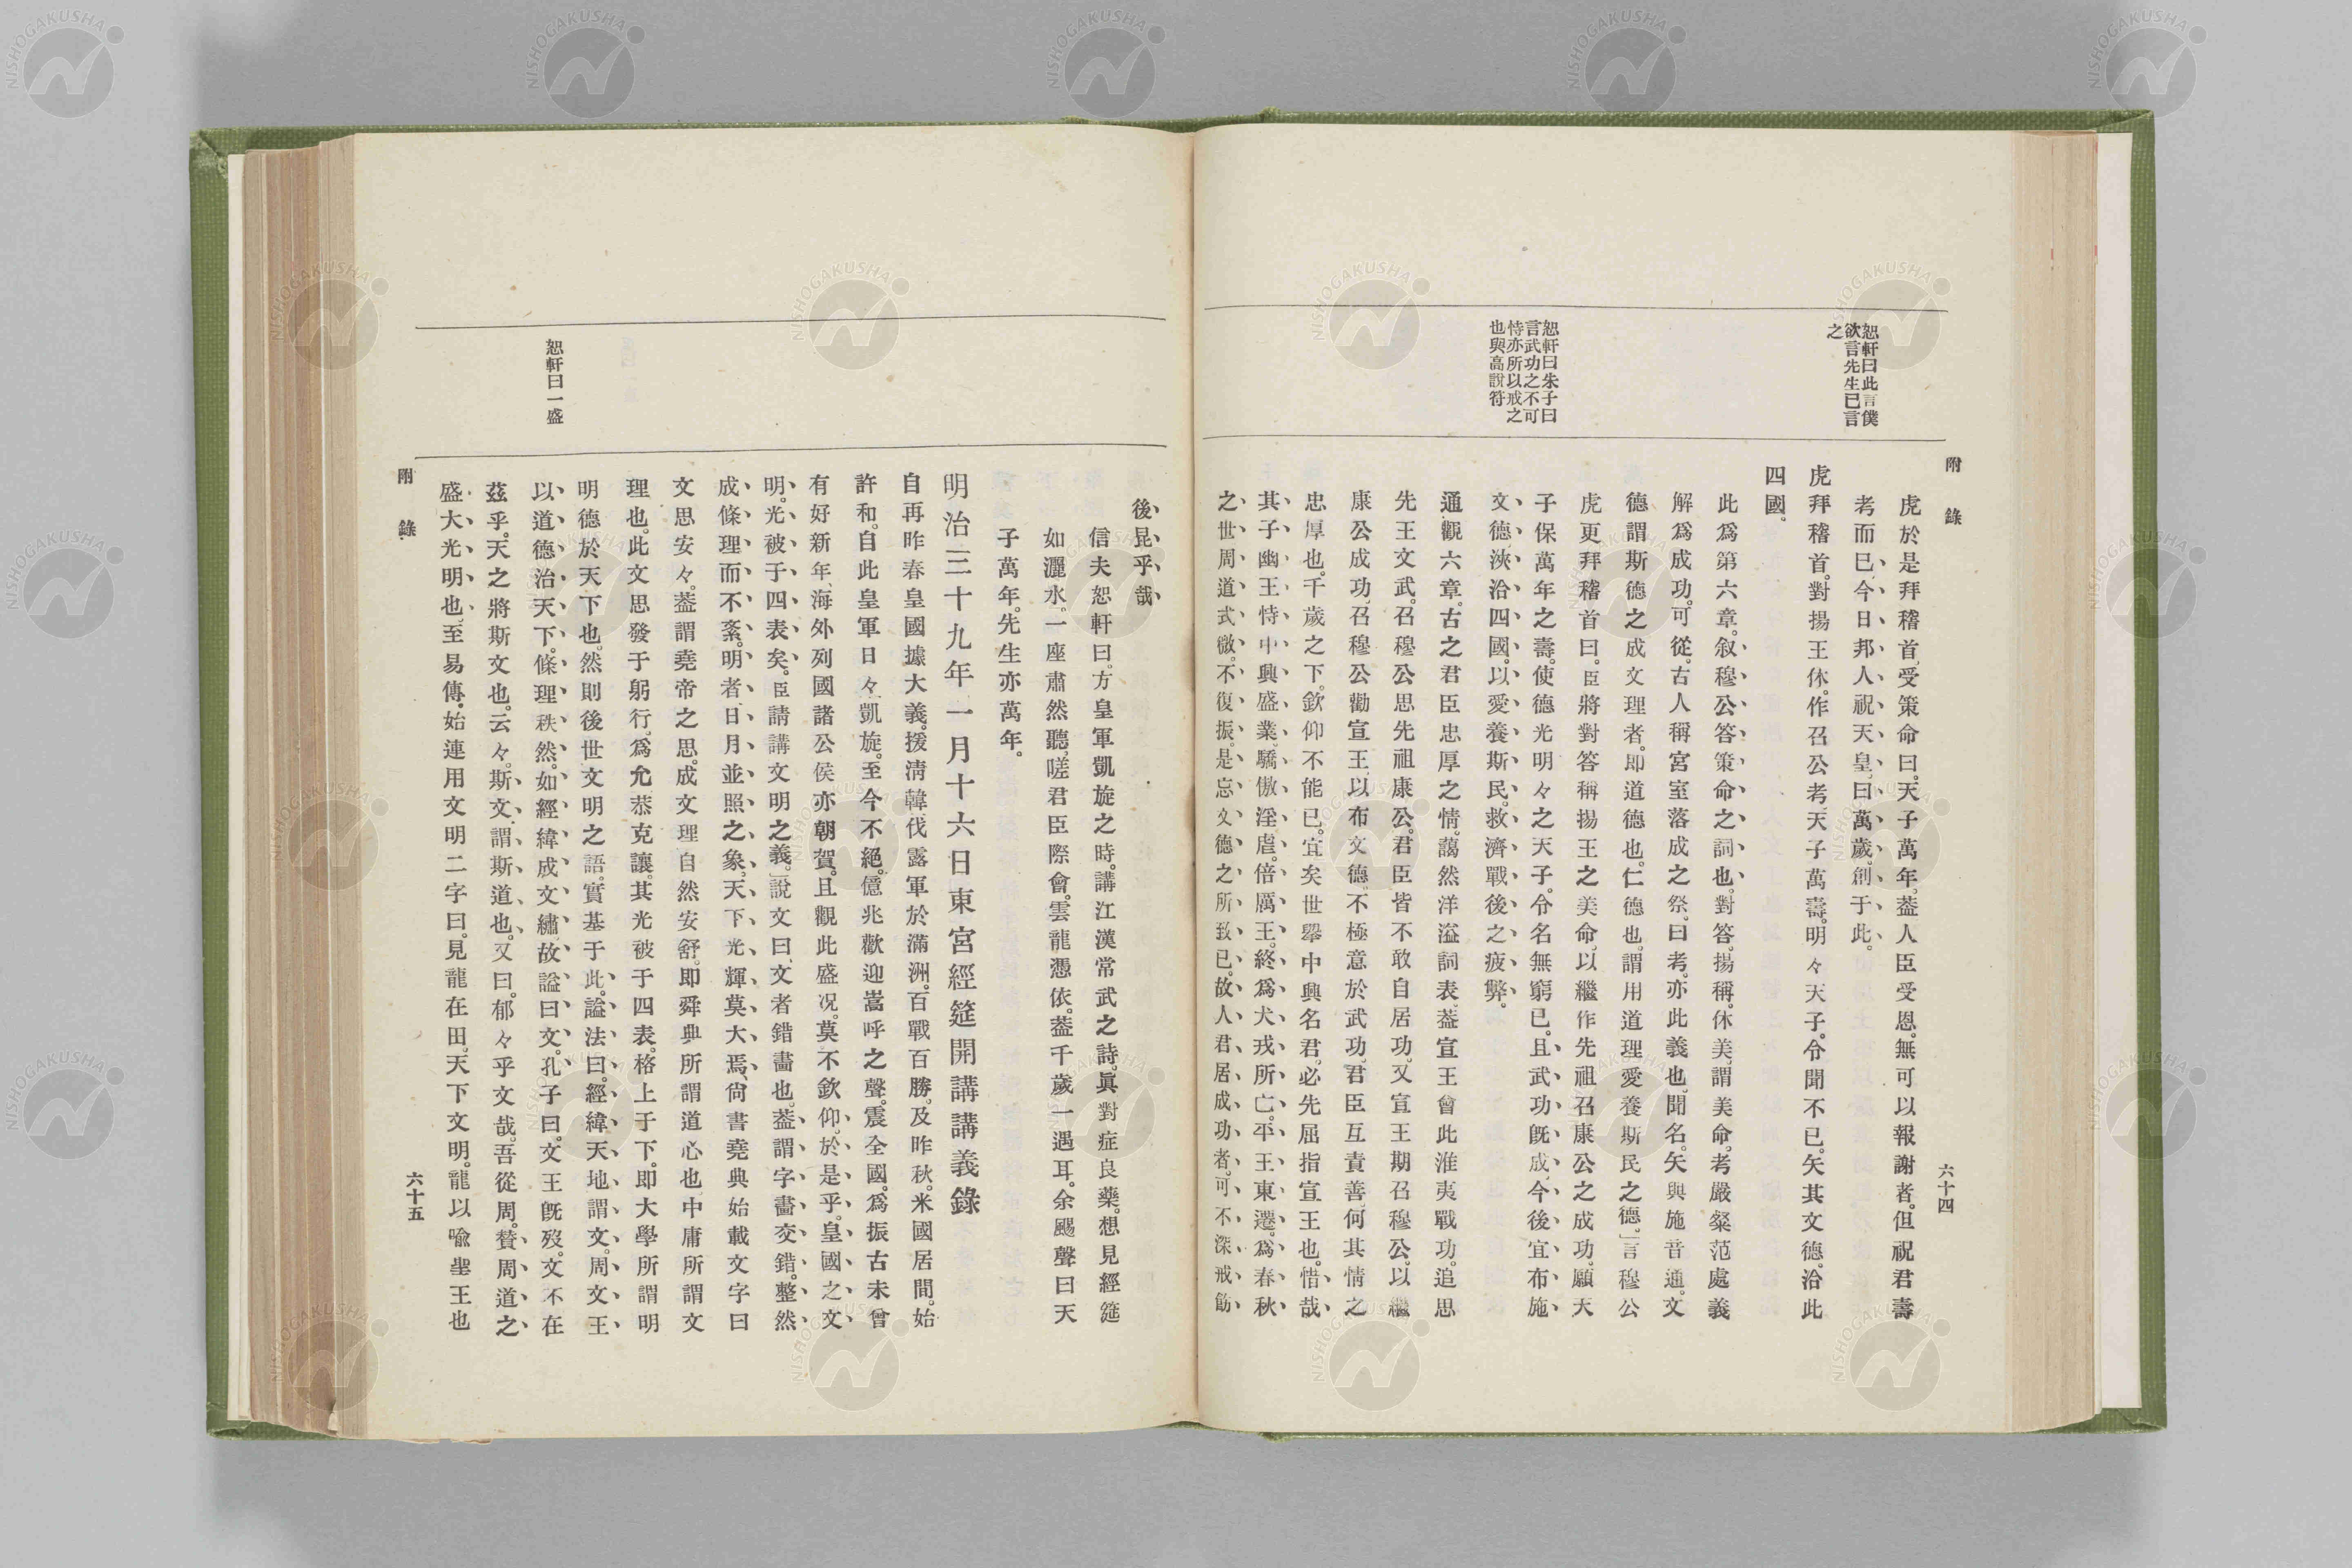 附錄
六十四
恕軒曰此言僕
欲言先生已言
之
恕軒曰朱子曰
言武功之不可
恃亦所以戒之
也與高説符
虎於是拜稽首、受策命曰。天子萬年。葢人臣受恩。無可以報謝者。但祝君壽
考而已、今日邦人祝天皇、曰萬歲、創于此。
虎拜稽首。對揚王休。作召公考。天子萬壽。明々天子。令聞不已。矢其文德。洽此
四國。
此爲第六章。叙穆公答策命之詞也。對答、揚稱。休美、謂美命。考嚴粲范處義
解爲成功。可從。古人稱宮室落成之祭、曰考。亦此義也、聞名。矢與施音通。文
德謂斯德之成文理者。即道德也。仁德也。謂用道理愛養斯民之德」言穆公
虎更拜稽首曰。臣將對答稱揚王之美命、以繼作先祖召康公之成功。願天
子保萬年之壽。使德光明々之天子。令名無窮已。且武功旣成、今後宜布施
文德、浹洽四國。以愛養斯民。救濟戰後之疲弊。
通觀六章。古之君臣忠厚之情。藹然洋溢詞表。葢宣王會此淮夷戰功。追思
先王文武。召穆公思先祖康公。君臣皆不敢自居功。又宣王期召穆公。以繼
康公成功、召穆公勸宣王、以布文德。不極意於武功、君臣互責善、何其情之
忠厚也。千歲之下。欽仰不能已。宜矣世擧中興名君、必先屈指宣王也。惜哉
其子幽王恃中興盛業、驕傲淫虐。倍厲王。終爲犬戎所亡。平王東遷。爲春秋
之世周道式微。不復振。是忘文德之所致已。故人君居成功者、可不深戒飭
後昆乎哉
信夫恕軒曰。方皇軍凱旋之時。講江漢常武之詩。眞對症良藥。想見經筵
如灑水。一座肅然聽、嗟君臣際會。雲龍憑依。葢千歲一遇耳。余颺聲曰天
子萬年。先生亦萬年。
明治三十九年一月十六日東宮經筵開講講義錄
自再昨春皇國據大義。援淸韓、伐露軍於滿洲。百戰百勝。及昨秋。米國居間。始
許和。自此皇軍日々凱旋。至今不絕。億兆歡迎嵩呼之聲。震全國。爲振古未曾
有好新年、海外列國諸公侯亦朝賀。且觀此盛況。莫不欽仰。於是乎。皇國之文
明。光被于四表矣。臣請講文明之義。」說文曰、文者錯畫也。葢謂字畫交錯。整然
成條理而不紊。明者、日月並照之象、天下光輝莫大焉、尙書堯典始載文字曰
文思安々。葢謂堯帝之思。成文理自然安舒。即舜典所謂道心也、中庸所謂文
理也。此文思發于躬行。爲允恭克讓。其光被于四表。格上于下。即大學所謂明
明德於天下也。然則後世文明之語。實基于此。諡法曰。經緯天地謂文。周文王
以道德治天下。條理秩然。如經緯成文繡、故諡曰文。孔子曰。文王旣歿。文不在
茲乎。天之將斯文也。云々。斯文謂斯道也。又曰。郁々乎文哉。吾從周。賛周道之
盛大光明也、至易傳。始連用文明二字曰。見龍在田。天下文明。龍以喩聖王也
恕軒曰一盛
附錄
六十五